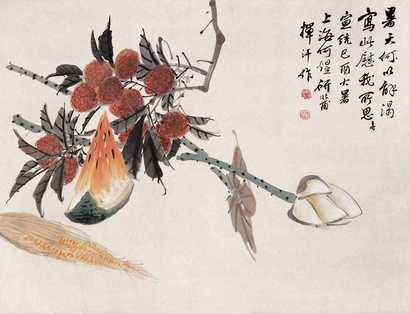 暑天何以解渴
寫此慰我所思
宣統己酉大暑
上海何
揮汗作